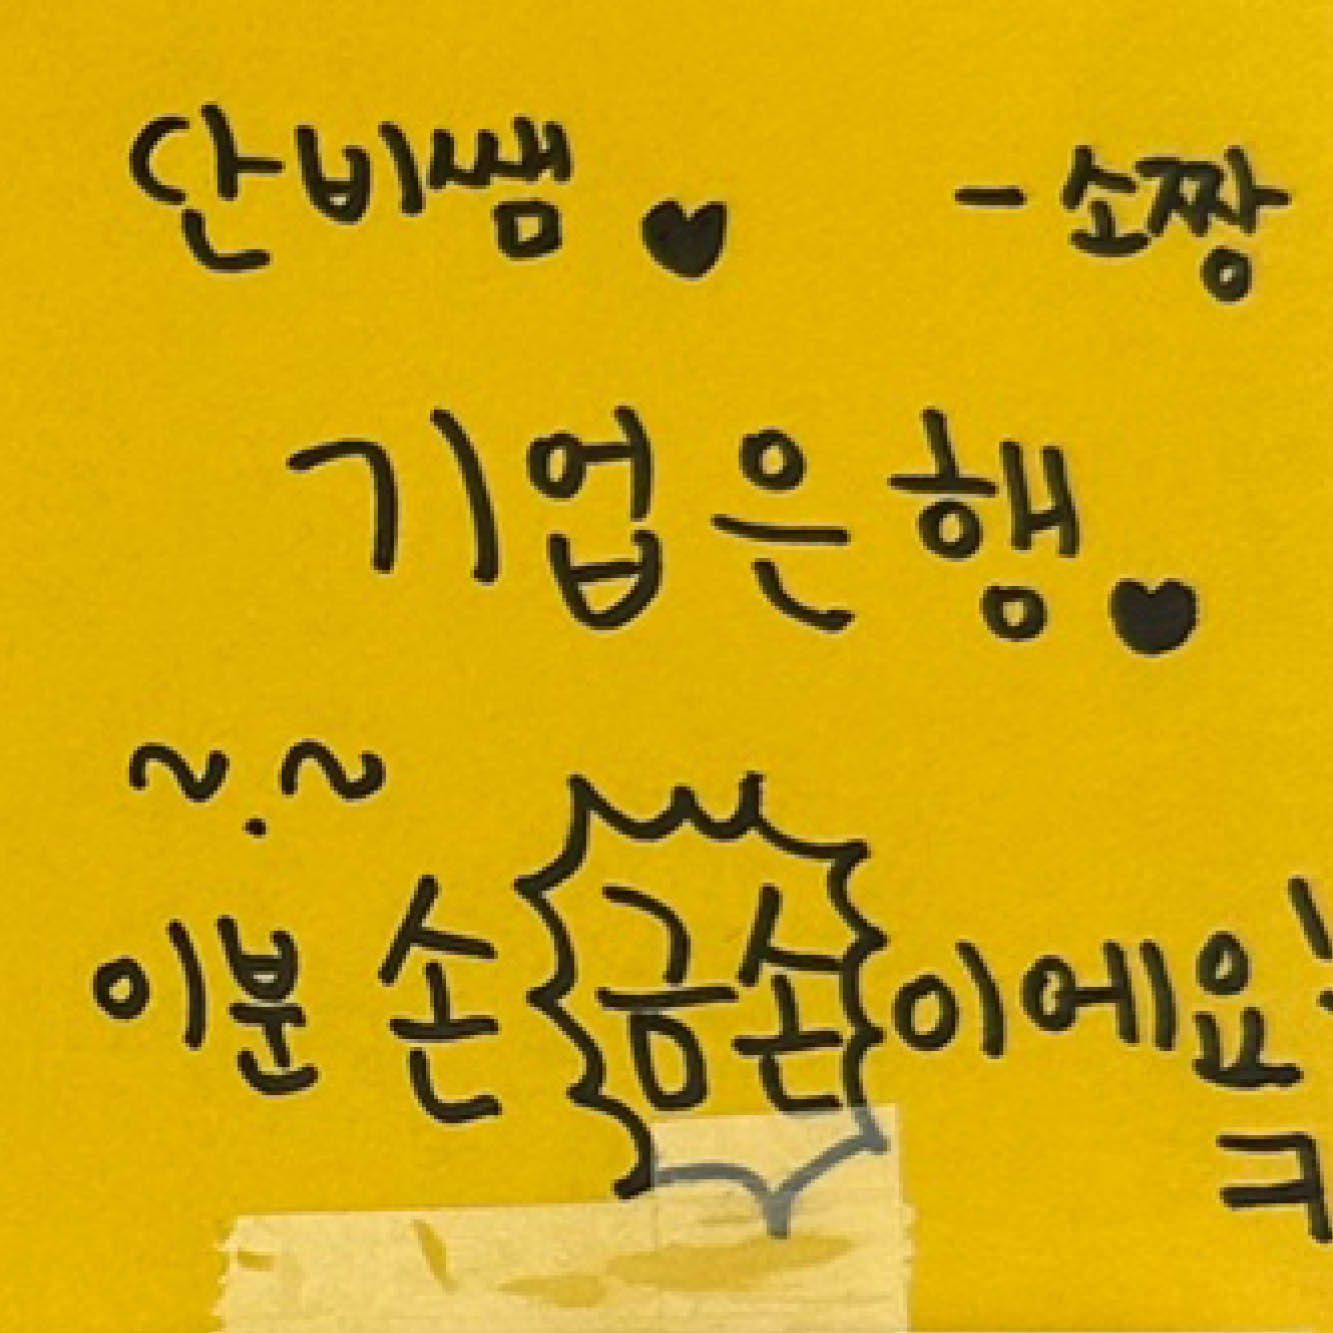 단비쌤♥ - 소짱
기업은행♥
~.~
이분 손 금손이에요!
ㅋ